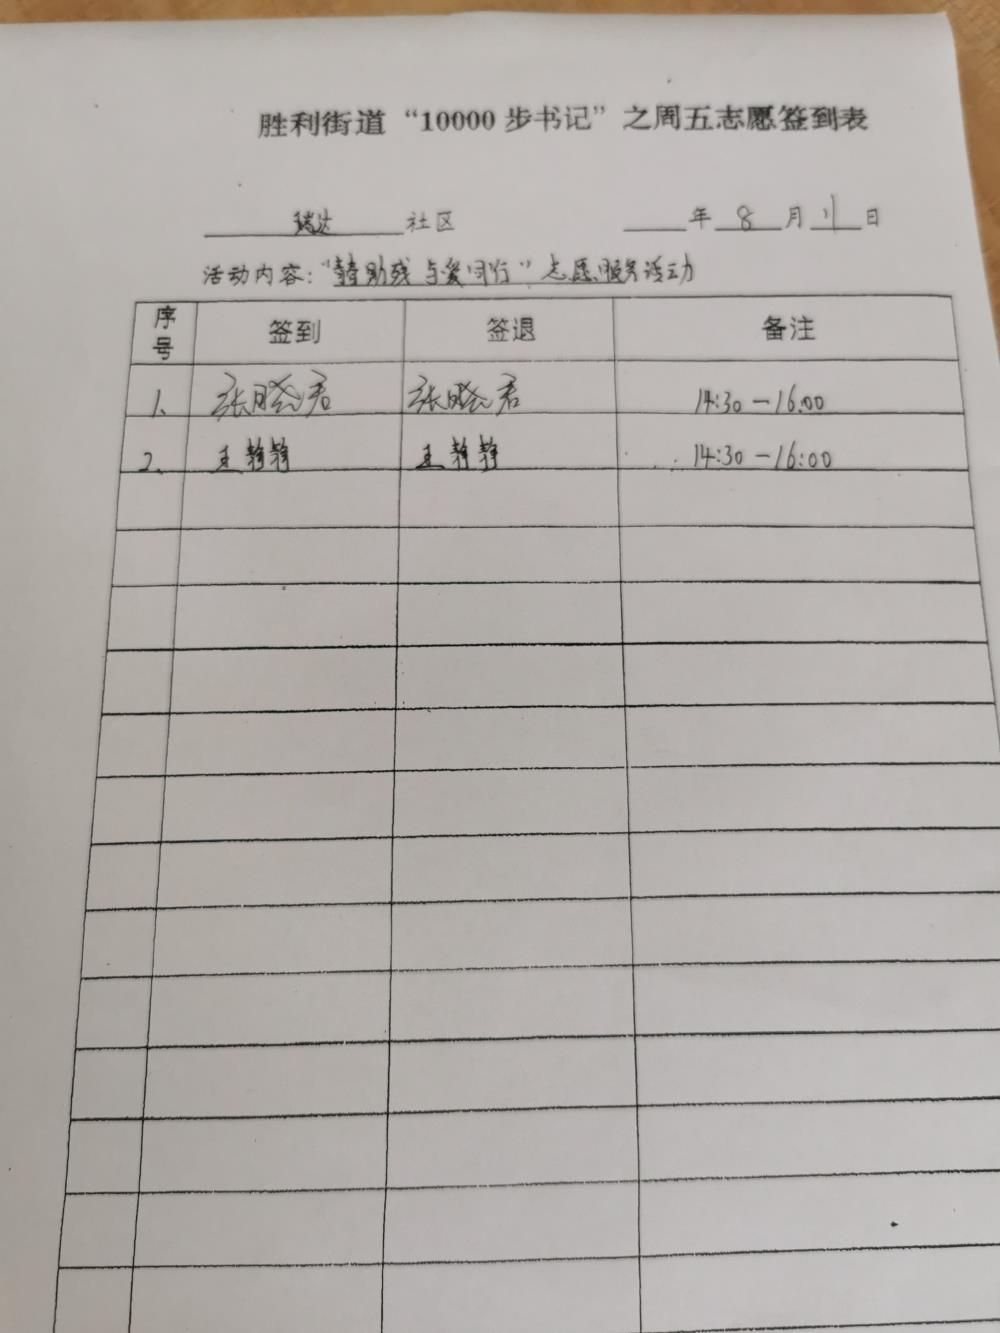 胜利街道“10000步书记”之周五志愿签到表
瑞达社区 年8月 日
活动内容:“ 助残 与爱同行”志愿服务活动
序号 签到 签退 备注
1、 张晓君 张晓君 14:30-16:00
2、 王静静 王静静 14:30-16:00